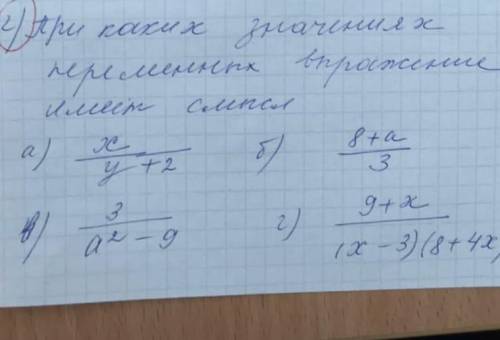 2) При каких значениях
переменных выражение
имеет смысл
а) x / (y + 2) б) (8 + a) / 3
в) 3 / (a² - 9) г) (9 + x) / ((x - 3)(8 + 4x)